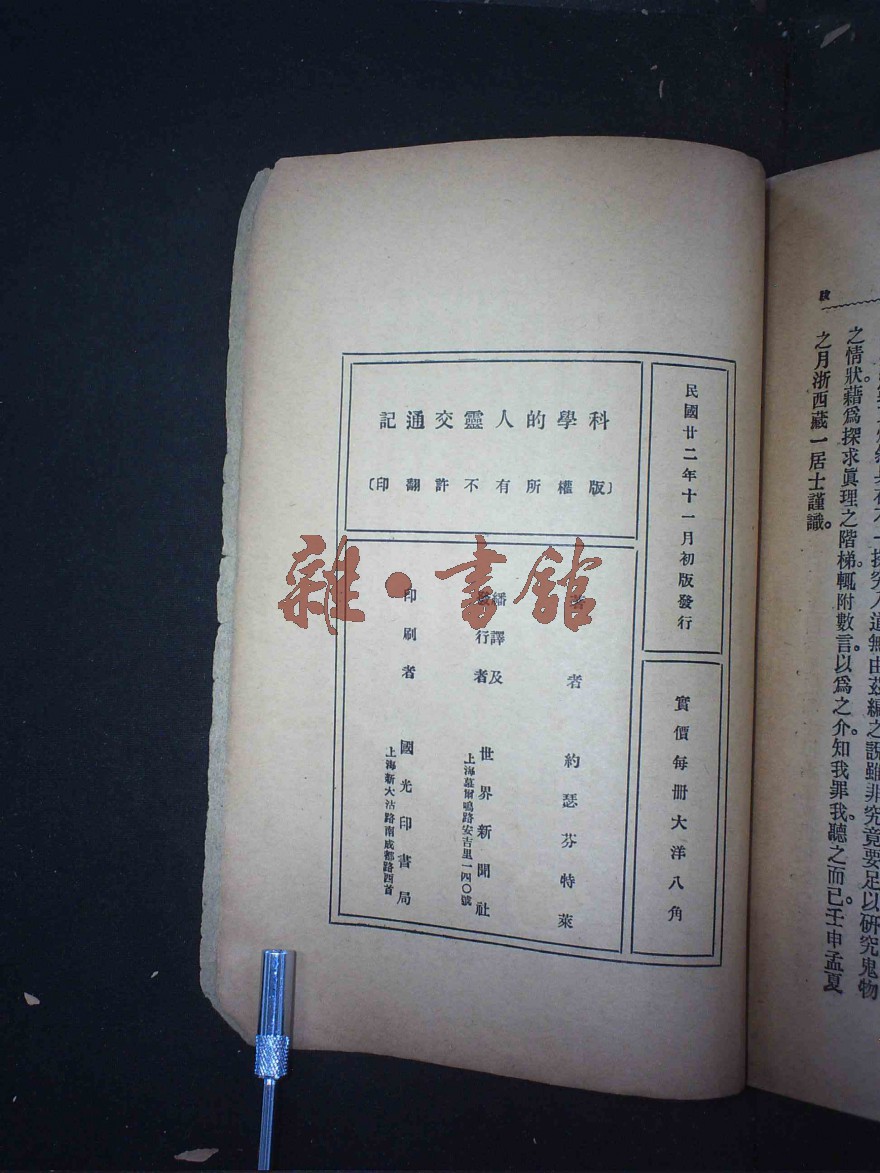 跋
之情狀藉爲探求眞理之階梯。輒附數言。以爲之介。知我罪我。聽之而已。壬申孟夏
之月浙西藏一居士謹識。
民國廿二年十一月初版發行
實價每册大洋八角
科學的人靈交通記
〔版權所有不許翻印〕
著者 約瑟芬特萊
繙譯及
發行者
世界新聞社
上海慕爾鳴路安吉里一四〇號
印刷者 國光印書局
上海新大沽路南成都路西首
雜·書館